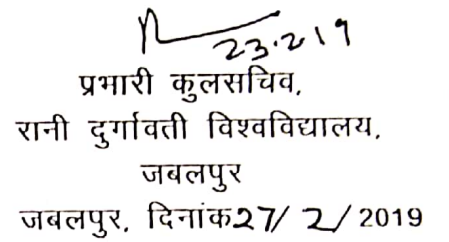 23.2.19
प्रभारी कुलसचिव,
रानी दुर्गावती विश्वविद्यालय,
जबलपुर
जबलपुर, दिनांक27/2/2019